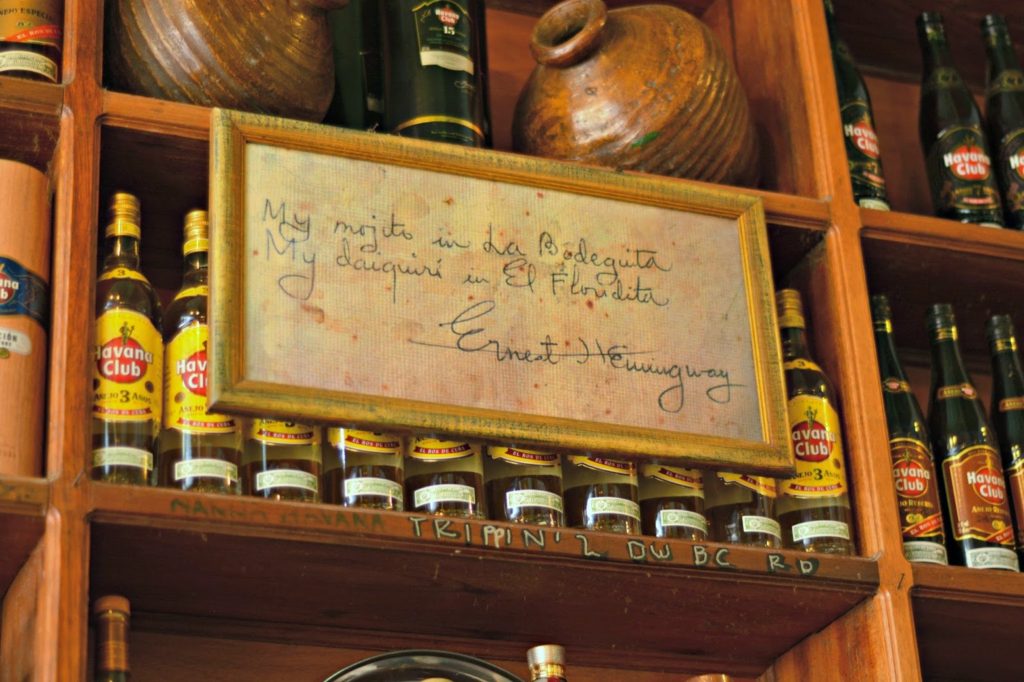 My mojito in La Bodeguita
My daiquirí in El Floridita
Ernest Hemingway
Havana
Club
AÑEJO 3 AÑOS
EL RON DE CUBA
Havana
Club
AÑEJO 3 AÑOS
Havana
Club
AÑEJO 3 AÑOS
EL RON DE CUBA
Havana
Club
15
Havana
Club
Havana
Club
Havana
Club
Havana
Club
AÑEJO RESERVA
Havana
Club
AÑEJO RESERVA
TRIPPIN' 2 DW BC RD